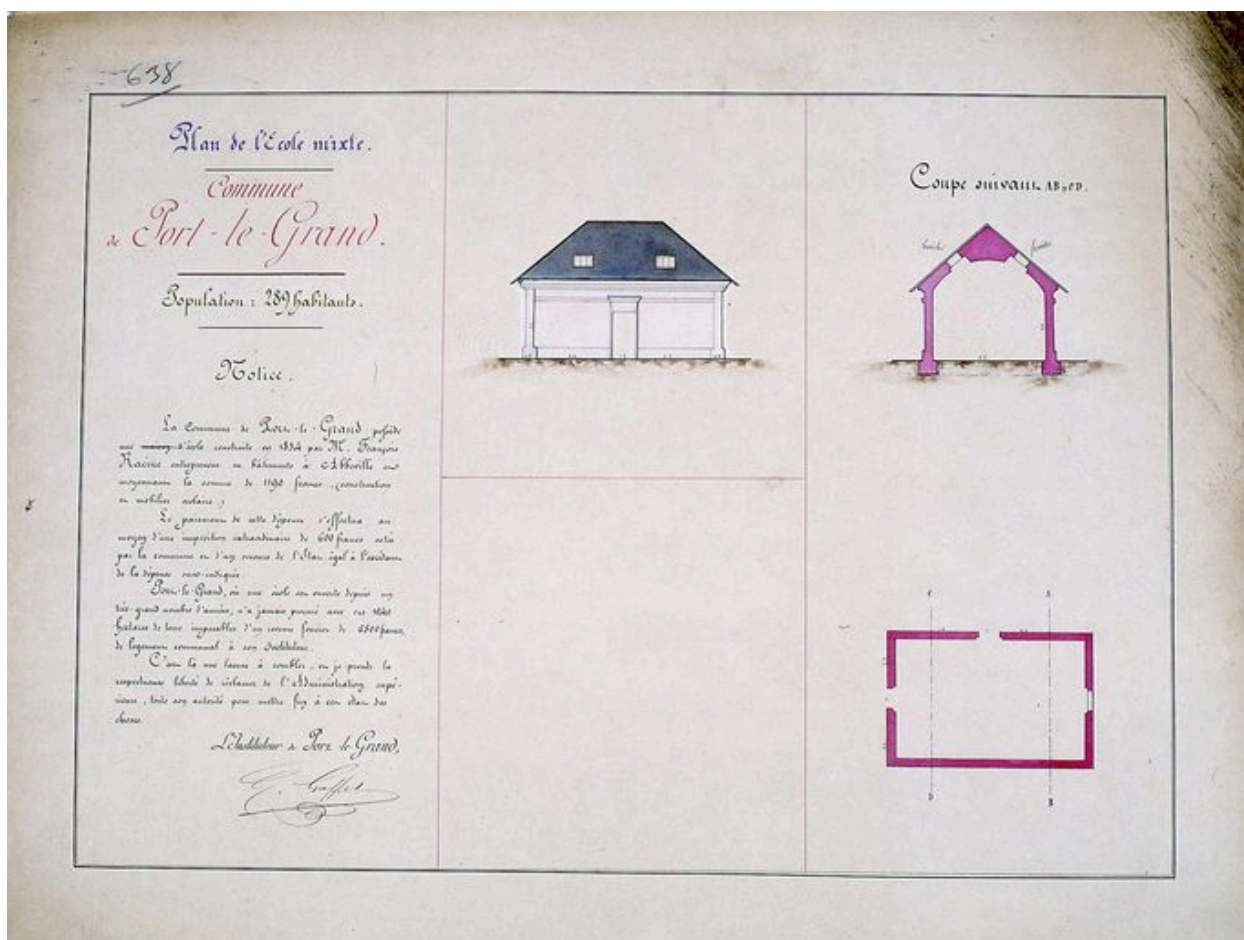 638
Plan de l'École mixte.
Commune
de Port-le-Grand.
Population : 289 habitants.
Notice.
La Commune de Port-le-Grand possède
une maison d'école construite en 1834 par M. François
Racine entrepreneur en bâtiments à Abbeville
moyennant la somme de 1190 francs (construction
et mobilier scolaire)
Le paiement de cette dépense s'effectua au
moyen d'une imposition extraordinaire de 600 francs votée
par la commune et d'un secours de l'État égal à l'excédant
de la dépense sus-indiquée.
Port-le-Grand, où une école est ouverte depuis un
très grand nombre d'années, n'a jamais pensé avec ses
hectares de terre imposables d'un revenu foncier de francs,
de logement communal à son Instituteur.
C'est là une lacune à combler, et je prends la
respectueuse liberté de réclamer de l'Administration supé-
rieure, toute son autorité pour mettre fin à cet état des
choses.
L'Instituteur de Port le Grand,
Coupe suivant AB, CD.
C A
D B